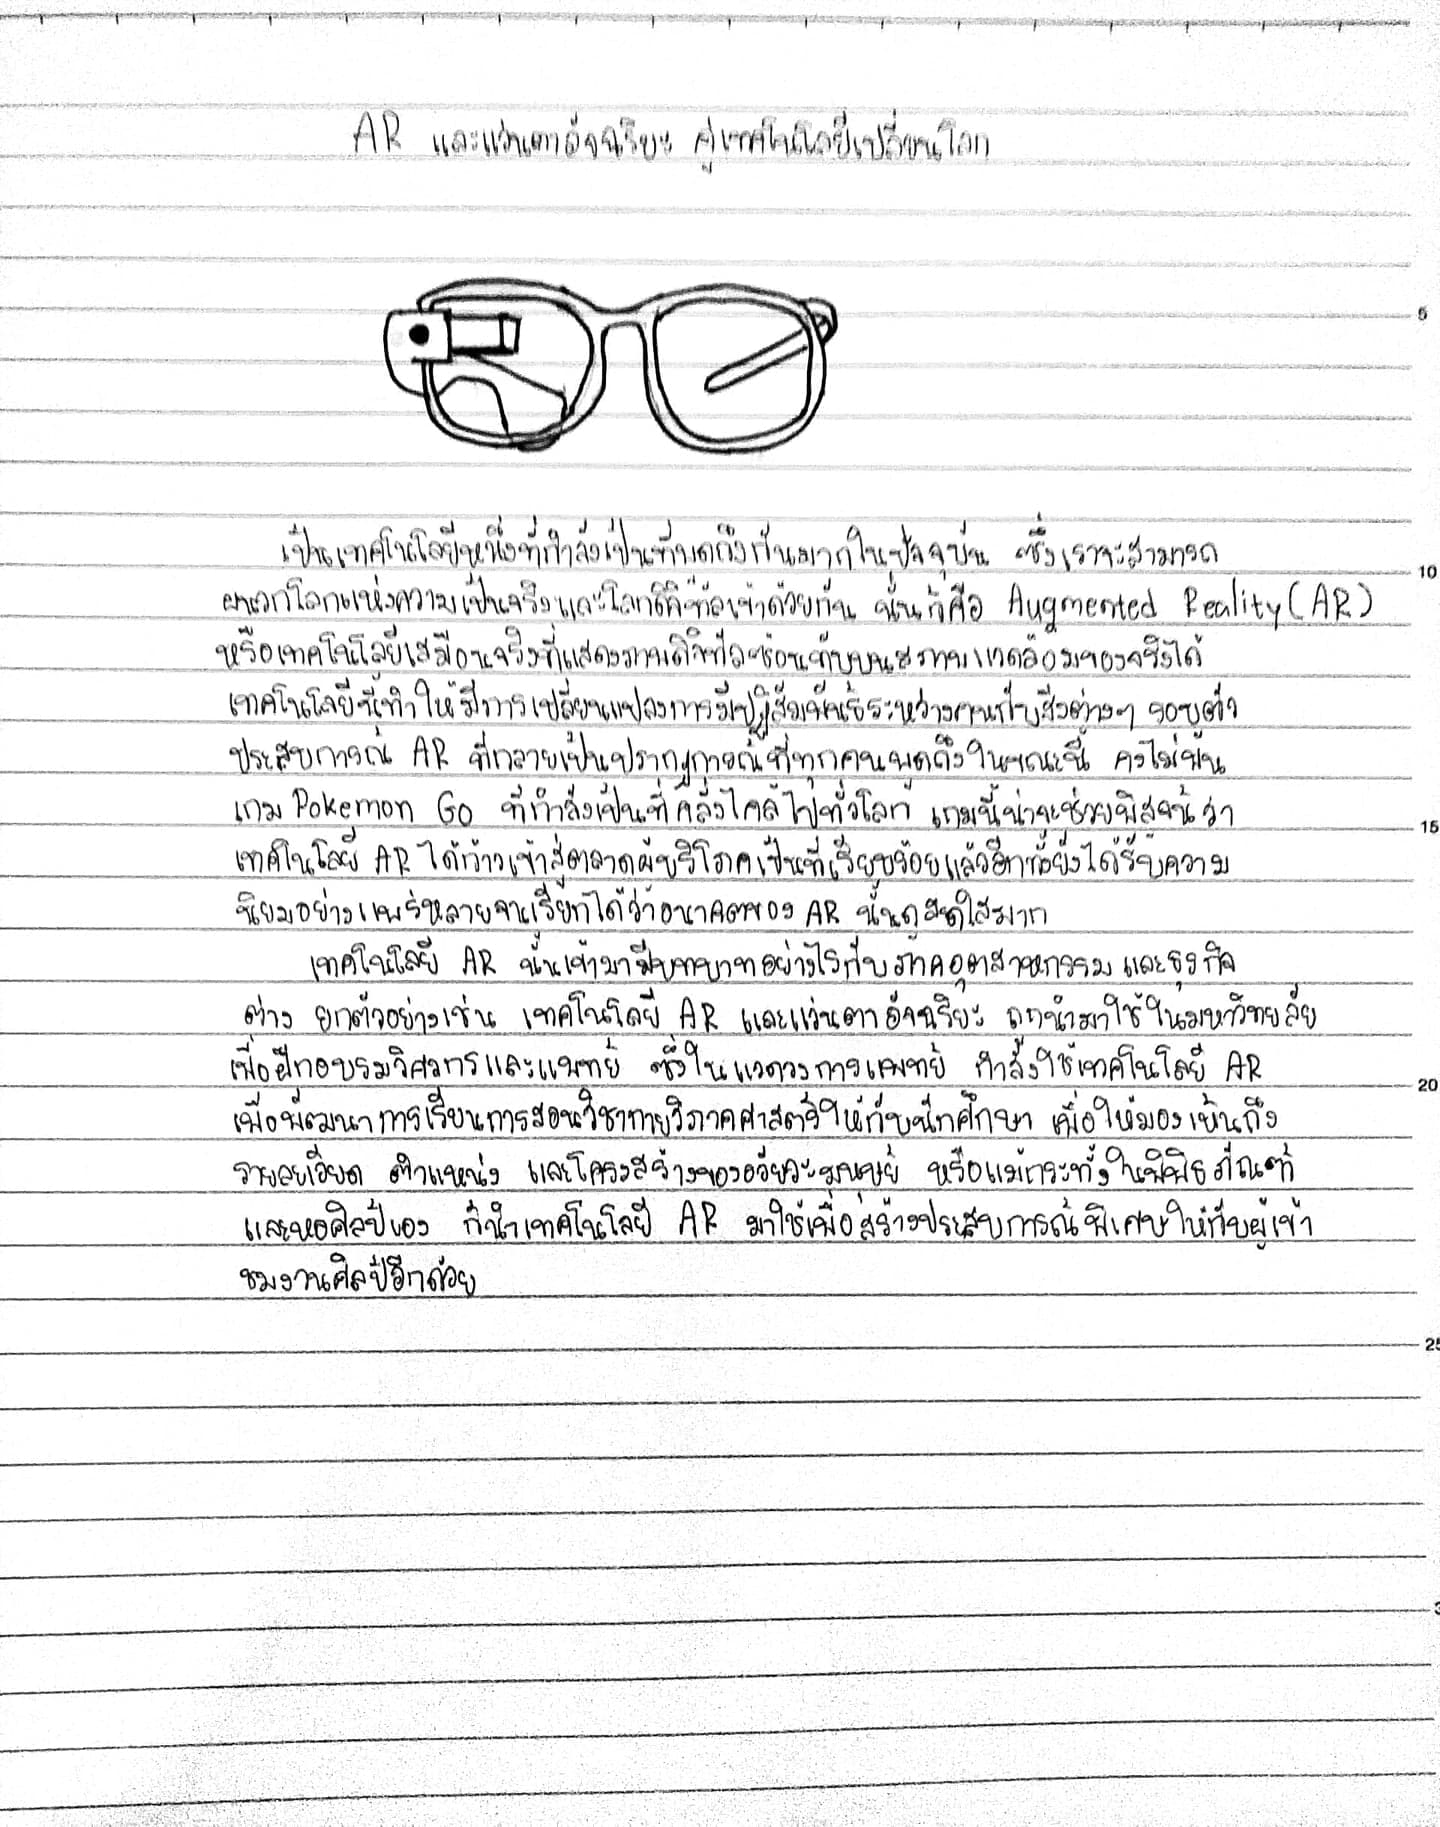 AR และแว่นตาอัจฉริยะ คู่เทคโนโลยีเปลี่ยนโลก
5
เป็นเทคโนโลยีหนึ่งที่กำลังเป็นที่พูดถึงกันมากในปัจจุบัน ซึ่งเราจะสามารถ
10
ผนวกโลกแห่งความเป็นจริงและโลกดิจิทัลเข้าด้วยกัน นั่นก็คือ Augmented Reality (AR)
หรือเทคโนโลยีเสมือนจริงที่แสดงภาพดิจิทัลซ้อนทับบนสภาพแวดล้อมของจริงได้
เทคโนโลยีนี้ทำให้มีการเปลี่ยนแปลงการมีปฏิสัมพันธ์ระหว่างคนกับสิ่งต่างๆ รอบตัว
ประสบการณ์ AR ที่กลายเป็นปรากฏการณ์ที่ทุกคนพูดถึงในขณะนี้ คงไม่พ้น
เกม Pokemon Go ที่กำลังเป็นที่คลั่งไคล้ไปทั่วโลก เกมนี้น่าจะช่วยพิสูจน์ว่า
15
เทคโนโลยี AR ได้ก้าวเข้าสู่ตลาดผู้บริโภคเป็นที่เรียบร้อยแล้วอีกทั้งยังได้รับความ
นิยมอย่างแพร่หลายจนเรียกได้ว่าอนาคตของ AR นั้นดูสดใสมาก
เทคโนโลยี AR นั้นเข้ามามีบทบาทอย่างไรกับภาคอุตสาหกรรมและธุรกิจ
ต่าง ยกตัวอย่างเช่น เทคโนโลยี AR และแว่นตาอัจฉริยะ ถูกนำมาใช้ในมหาวิทยาลัย
เพื่อฝึกอบรมวิศวกรและแพทย์ ซึ่งในแวดวงการแพทย์ กำลังใช้เทคโนโลยี AR
20
เพื่อพัฒนาการเรียนการสอนวิชากายวิภาคศาสตร์ให้กับนักศึกษา เพื่อให้มองเห็นถึง
รายละเอียด ตำแหน่ง และโครงสร้างของอวัยวะมนุษย์ หรือแม้กระทั่งในพิพิธภัณฑ์
และหอศิลป์เอง ก็นำเทคโนโลยี AR มาใช้เพื่อสร้างประสบการณ์พิเศษให้กับผู้เข้า
ชมงานศิลป์อีกด้วย
25